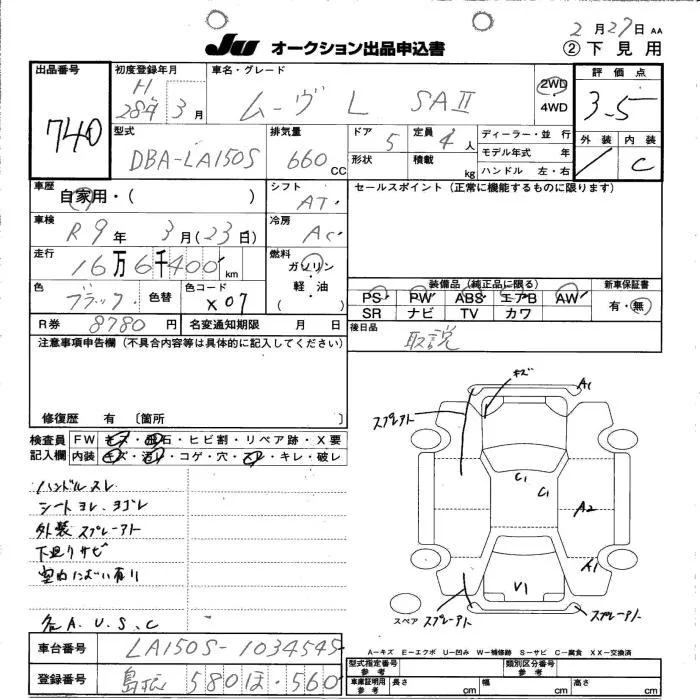 2月27日 AA
JU オークション出品申込書 ② 下見用
出品番号 740
初度登録年月 H28年 3月
車名・グレード ムーヴ L SAII
2WD
4WD
評価点 3.5
外装 / 内装 C
型式 DBA-LA150S
排気量 660 CC
ドア 5
形状
定員 4人
積載 kg
ディーラー・並行
モデル年式 年
ハンドル 左・右
車歴 自家用・( )
シフト AT
セールスポイント(正常に機能するものに限ります)
車検 R9年 3月(23日)
冷房 AC
走行 16万6千400km
燃料 ガソリン・軽油・( )
色 ブラック 色替
色コード X07
装備品(純正品に限る)
PS PW ABS エアB AW
SR ナビ TV カワ
新車保証書 有・無
R券 8780円
名変通知期限 月 日
後日品 取説
注意事項申告欄(不具合内容等は具体的に記入してください)
修復歴 有〔箇所 〕
検査員記入欄
FW キズ・飛石・ヒビ割・リペア跡・X要
内装 キズ・汚レ・コゲ・穴・スレ・キレ・破レ
ハンドルスレ
シートヨレ、ヨゴレ
外装スプレーアト
下廻りサビ
室内におい有り
各A、U、S、C
キズ
A1
スプレーアト
C1
C1
A2
A1
V1
スペア
スプレーアト
スプレーアト
A−キズ E−エクボ U−凹み W−補修跡 S−サビ C−腐食 XX−交換済
車台番号 LA150S-1034545
登録番号 島根 580 ほ・560
型式指定番号 参考
類別区分番号 参考
車庫証明用 参考 長さ cm 幅 cm 高さ cm